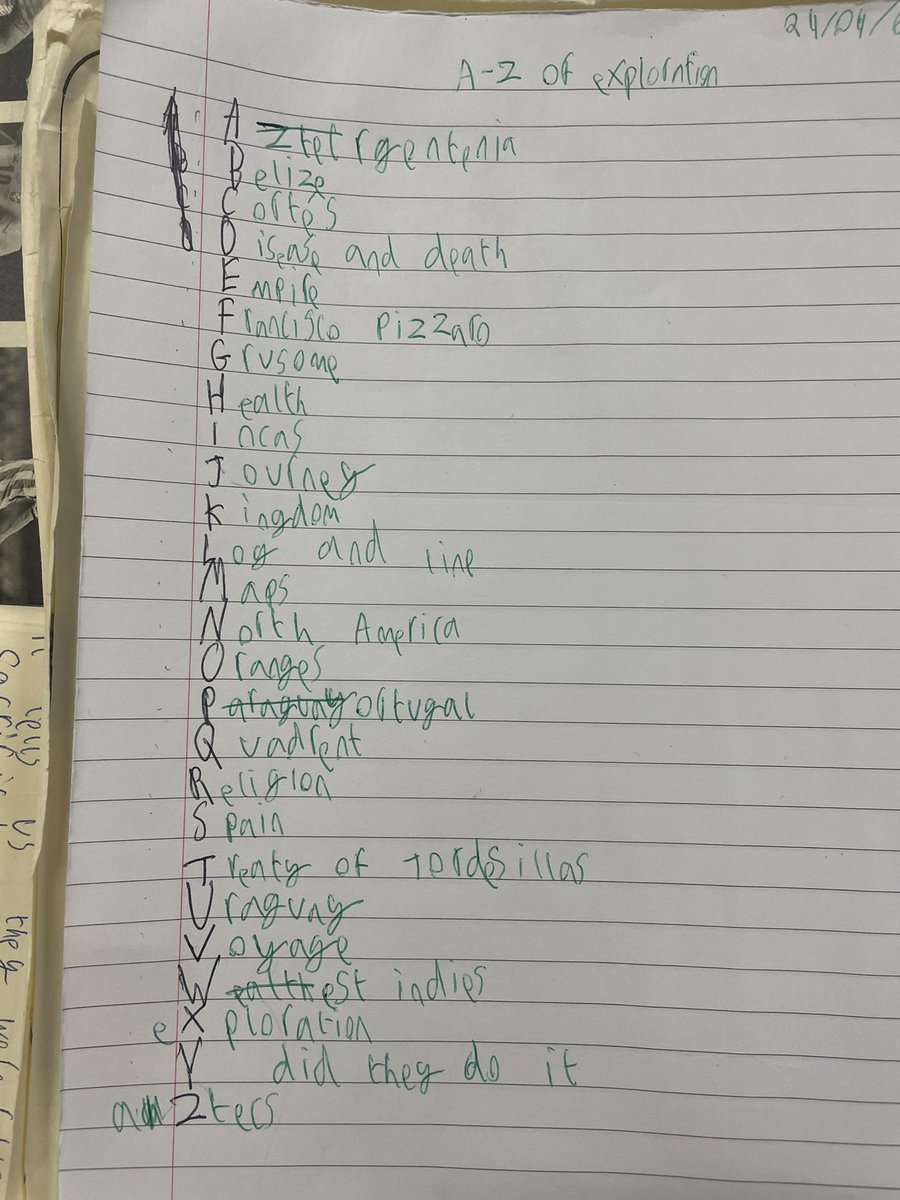 24/04/
A-Z of exploration
A Ztet rgentenia
Belize
Cortes
Disease and death
Empire
Francisco Pizzaro
Grusome
Health
Incas
Journey
Kingdom
Log and line
Maps
North America
Oranges
Paraguay ortugal
Quadrent
Religion
Spain
Treaty of Tordesillas
Uraguay
Voyage
Wealth est indies
eXploration
Y did they do it
aZtecs
they